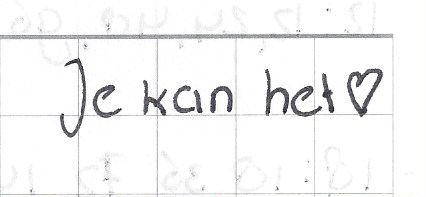 Je kan het♡